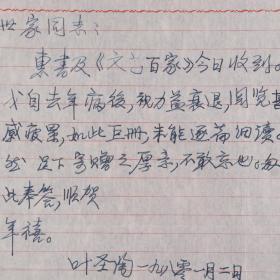 世家同志：
惠书及《文言百家》今日收到。
我自去年病後，视力益衰退，阅览甚
感疲累，如此巨册，未能逐篇细读。
然足下寄赠之厚亲，不敢忘也。
此奉答，顺贺
年禧。
叶圣陶一九八零一月二日